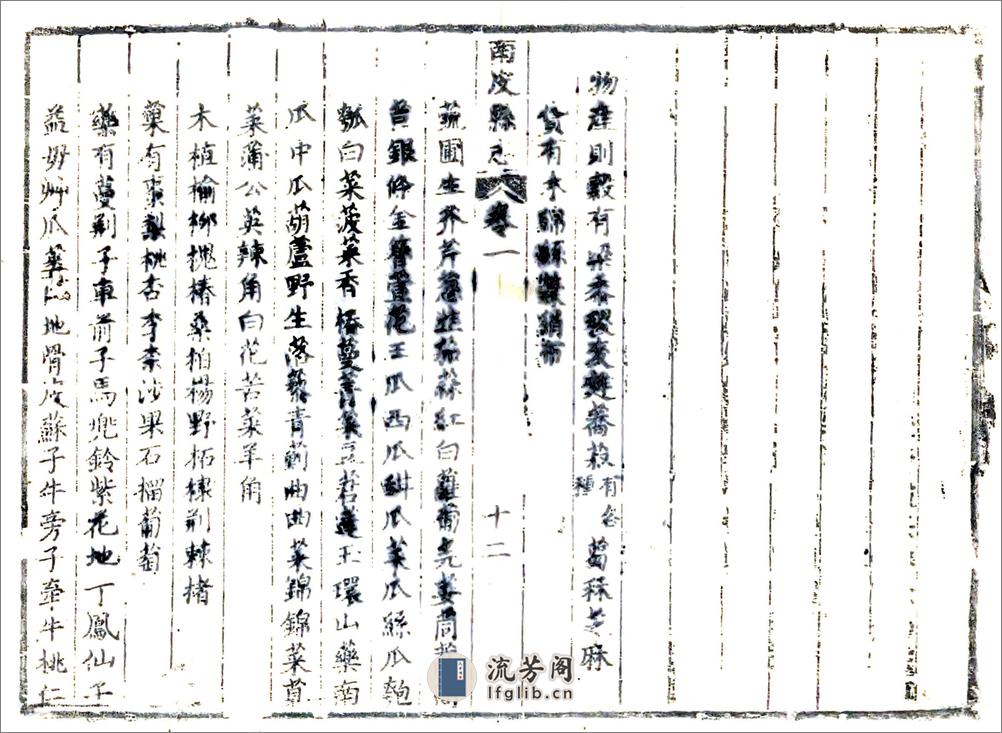 物產則穀有粱黍稷麥蕎菽有各種蜀秫芝麻
貨有木綿絲絹布
南皮縣志 卷一 十二
蔬圃生芥芹蔥韭蒜紅白蘿蔔
銀條金簪萱花王瓜西瓜甜瓜菜瓜絲瓜匏
瓠白菜菠菜香椿蔓菁菜豆君蓬玉環山藥南
瓜中瓜葫蘆野生落藜青薊曲曲菜錦錦菜
菜蒲公英辣角白花苦菜羊角
木植榆柳槐椿桑柏楊野柘棣荊棘楮
菓有棗梨桃杏李柰沙果石榴葡萄
藥有蔓荊子車前子馬兜鈴紫花地丁鳳仙子
益母艸瓜蔞仁地骨皮蘇子牛旁子牽牛桃仁
流芳阁
lfglib.cn